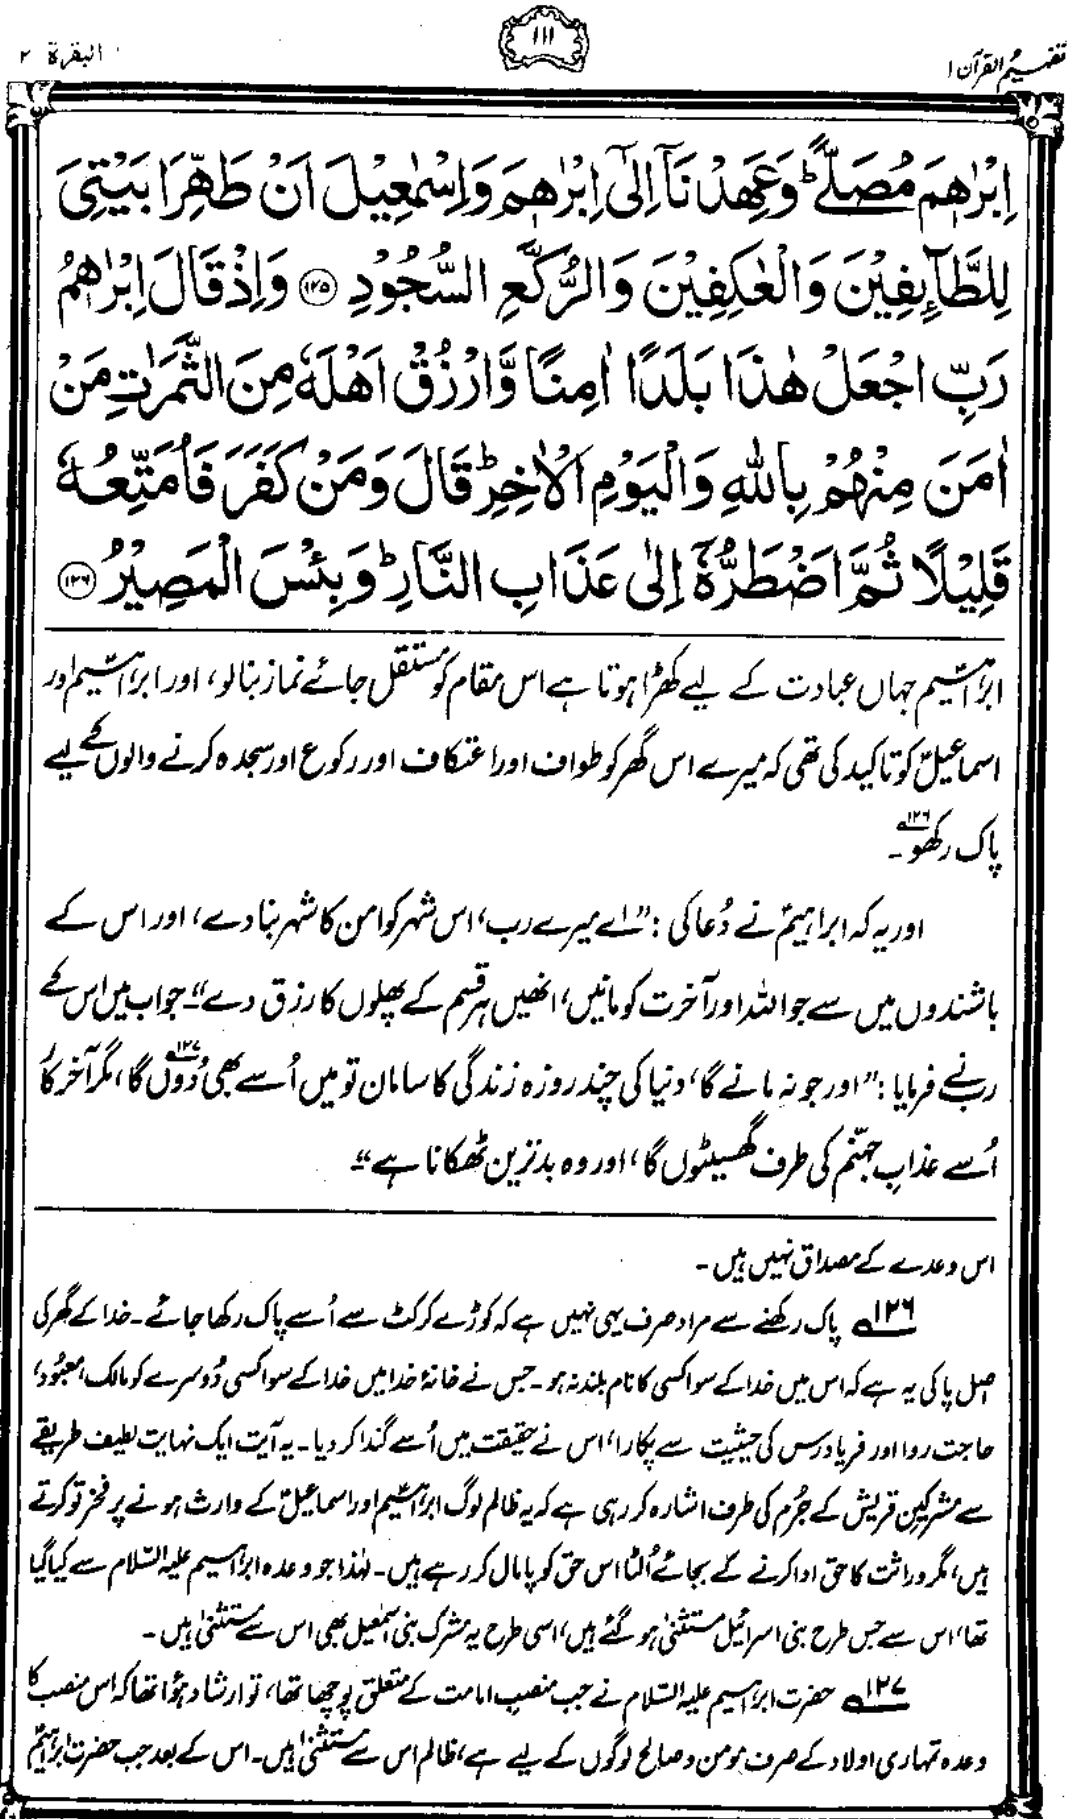 تفہیم القرآن ۱
۱۱۱
البقرۃ ۲
اِبْرٰهٖمَ مُصَلًّى ؕ وَعَهِدْنَاۤ اِلٰۤى اِبْرٰهٖمَ وَاِسْمٰعِيْلَ اَنْ طَهِّرَا بَيْتِيَ
لِلطَّآىِٕفِيْنَ وَالْعٰكِفِيْنَ وَالرُّكَّعِ السُّجُوْدِ ۝۱۲۵ وَاِذْ قَالَ اِبْرٰهٖمُ
رَبِّ اجْعَلْ هٰذَا بَلَدًا اٰمِنًا وَّارْزُقْ اَهْلَهٗ مِنَ الثَّمَرٰتِ مَنْ
اٰمَنَ مِنْهُمْ بِاللّٰهِ وَالْيَوْمِ الْاٰخِرِ ؕ قَالَ وَمَنْ كَفَرَ فَاُمَتِّعُهٗ
قَلِيْلًا ثُمَّ اَضْطَرُّهٗۤ اِلٰى عَذَابِ النَّارِ ؕ وَبِئْسَ الْمَصِيْرُ ۝۱۲۶
ابراہیم جہاں عبادت کے لیے کھڑا ہوتا ہے اس مقام کو مستقل جائے نماز بنا لو، اور ابراہیم اور
اسماعیلؑ کو تاکید کی تھی کہ میرے اس گھر کو طواف اور اعتکاف اور رکوع اور سجدہ کرنے والوں کے لیے
پاک رکھو۱۲۶۔
اور یہ کہ ابراہیمؑ نے دُعا کی : ”اے میرے رب، اس شہر کو امن کا شہر بنا دے، اور اس کے
باشندوں میں سے جو اللہ اور آخرت کو مانیں، انھیں ہر قسم کے پھلوں کا رزق دے“۔ جواب میں اس کے
رب نے فرمایا : ”اور جو نہ مانے گا، دنیا کی چند روزہ زندگی کا سامان تو میں اُسے بھی دُوں گا۱۲۷، مگر آخرکار
اُسے عذابِ جہنّم کی طرف گھسیٹوں گا، اور وہ بدترین ٹھکانا ہے“۔
اس وعدے کے مصداق نہیں ہیں۔
۱۲۶ پاک رکھنے سے مراد صرف یہی نہیں ہے کہ کوڑے کرکٹ سے اُسے پاک رکھا جائے۔ خدا کے گھر کی
اصل پاکی یہ ہے کہ اس میں خدا کے سوا کسی کا نام بلند نہ ہو۔ جس نے خانۂ خدا میں خدا کے سوا کسی دُوسرے کو مالک، معبُود،
حاجت روا اور فریاد رس کی حیثیت سے پکارا، اس نے حقیقت میں اُسے گندا کر دیا۔ یہ آیت ایک نہایت لطیف طریقے
سے مشرکینِ قریش کے جُرم کی طرف اشارہ کر رہی ہے کہ یہ ظالم لوگ ابراہیمؑ اور اسماعیلؑ کے وارث ہونے پر فخر تو کرتے
ہیں، مگر وراثت کا حق ادا کرنے کے بجائے اُلٹا اس حق کو پامال کر رہے ہیں۔ لہٰذا جو وعدہ ابراہیم علیہ السّلام سے کیا گیا
تھا، اس سے جس طرح بنی اسرائیل مستثنیٰ ہو گئے ہیں، اسی طرح یہ مشرک بنی اسمٰعیل بھی اس سے مستثنیٰ ہیں۔
۱۲۷ حضرت ابراہیم علیہ السّلام نے جب منصبِ امامت کے متعلق پوچھا تھا، تو ارشاد ہؤا تھا کہ اس منصب کا
وعدہ تمہاری اولاد کے صرف مومن و صالح لوگوں کے لیے ہے، ظالم اس سے مستثنیٰ ہیں۔ اس کے بعد جب حضرت ابراہیمؑ